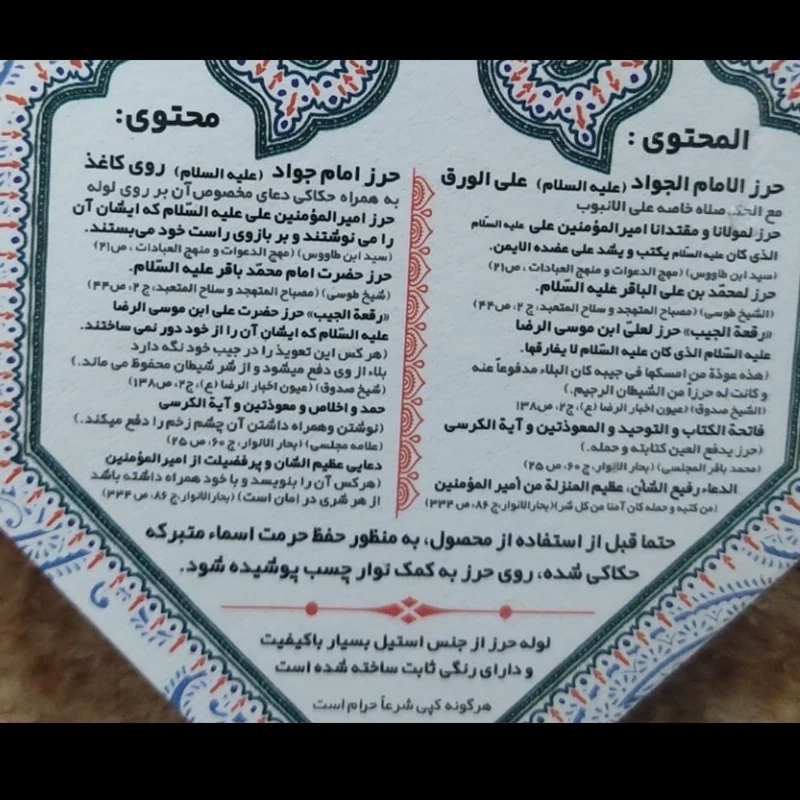 المحتوى :
حرز الامام الجواد (علیه السلام) علی الورق
مع الحک صلاه خاصه علی الانبوب
حرز لمولانا و مقتدانا امیرالمؤمنین علی علیه السّلام
الذی کان علیه السّلام یکتب و یشد علی عضده الایمن.
(سید ابن طاووس) (مهج الدعوات و منهج العبادات ، ص۲۱)
حرز لمحمّد بن علی الباقر علیه السّلام.
(الشیخ طوسی) (مصباح المتهجد و سلاح المتعبد، ج ۲، ص۴۴)
«رقعة الجیب» حرز لعلیّ ابن موسی الرضا
علیه السّلام الذی کان علیه السّلام لا یفارقها.
(هذه عوذة من امسکها فی جیبه کان البلاء مدفوعاً عنه
و کانت له حرزاً من الشیطان الرجیم.)
(الشیخ صدوق) (عیون اخبار الرضا (ع)، ج۲، ص۱۳۸
فاتحة الکتاب و التوحید و المعوذتین و آیة الکرسی
(حرز یدفع العین کتابته و حمله.)
(محمد باقر المجلسی) (بحار الانوار، ج۶۰، ص ۲۵)
الدعاء رفیع الشأن، عظیم المنزلة من أمیر المؤمنین
(من کتبه و حمله کان آمنا من کل شر)(بحارالانوار، ج ۸۶، ص ۳۳۴)
محتوی:
حرز امام جواد (علیه السلام) روی کاغذ
به همراه حکاکی دعای مخصوص آن بر روی لوله
حرز امیرالمؤمنین علی علیه السّلام که ایشان آن
را می نوشتند و بر بازوی راست خود می‌بستند.
(سید ابن طاووس) (مهج الدعوات و منهج العبادات ، ص۲۱)
حرز حضرت امام محمّد باقر علیه السّلام.
(شیخ طوسی) (مصباح المتهجد و سلاح المتعبد، ج ۲، ص۴۴)
«رقعة الجیب» حرز حضرت علی ابن موسی الرضا
علیه السّلام که ایشان آن را از خود دور نمی ساختند.
(هر کس این تعویذ را در جیب خود نگه دارد
بلاء از وی دفع میشود و از شر شیطان محفوظ می ماند.)
(شیخ صدوق) (عیون اخبار الرضا (ع)، ج۲، ص۱۳۸)
حمد و اخلاص و معوذتین و آیة الکرسی
(نوشتن وهمراه داشتن آن چشم زخم را دفع میکند.)
(علامه مجلسی) (بحار الانوار، ج۶۰، ص ۲۵)
دعایی عظیم الشان و پرفضیلت از امیرالمؤمنین
(هرکس آن را بنویسد و با خود همراه داشته باشد
از هر شری در امان است) (بحارالانوار، ج ۸۶، ص ۳۳۴)
حتما قبل از استفاده از محصول، به منظور حفظ حرمت اسماء متبرکه
حکاکی شده، روی حرز به کمک نوار چسب پوشیده شود.
لوله حرز از جنس استیل بسیار باکیفیت
و دارای رنگی ثابت ساخته شده است
هرگونه کپی شرعاً حرام است